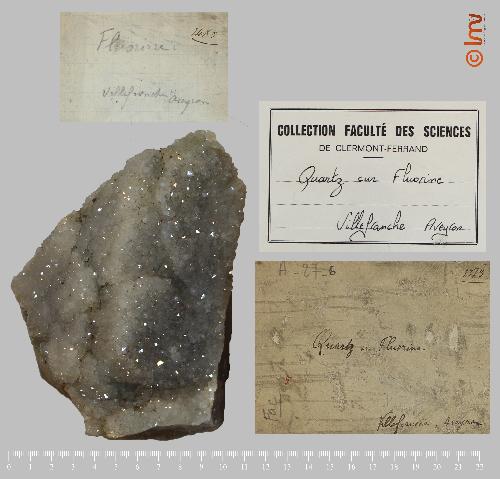 Fluorine
Villefranche Aveyron
© lmv
COLLECTION FACULTÉ DES SCIENCES
DE CLERMONT-FERRAND
Quartz sur Fluorine
Villefranche Aveyron
A-27-6
Quartz sur Fluorine
Villefranche, Aveyron
0 1 2 3 4 5 6 7 8 9 10 11 12 13 14 15 16 17 18 19 20 21 22